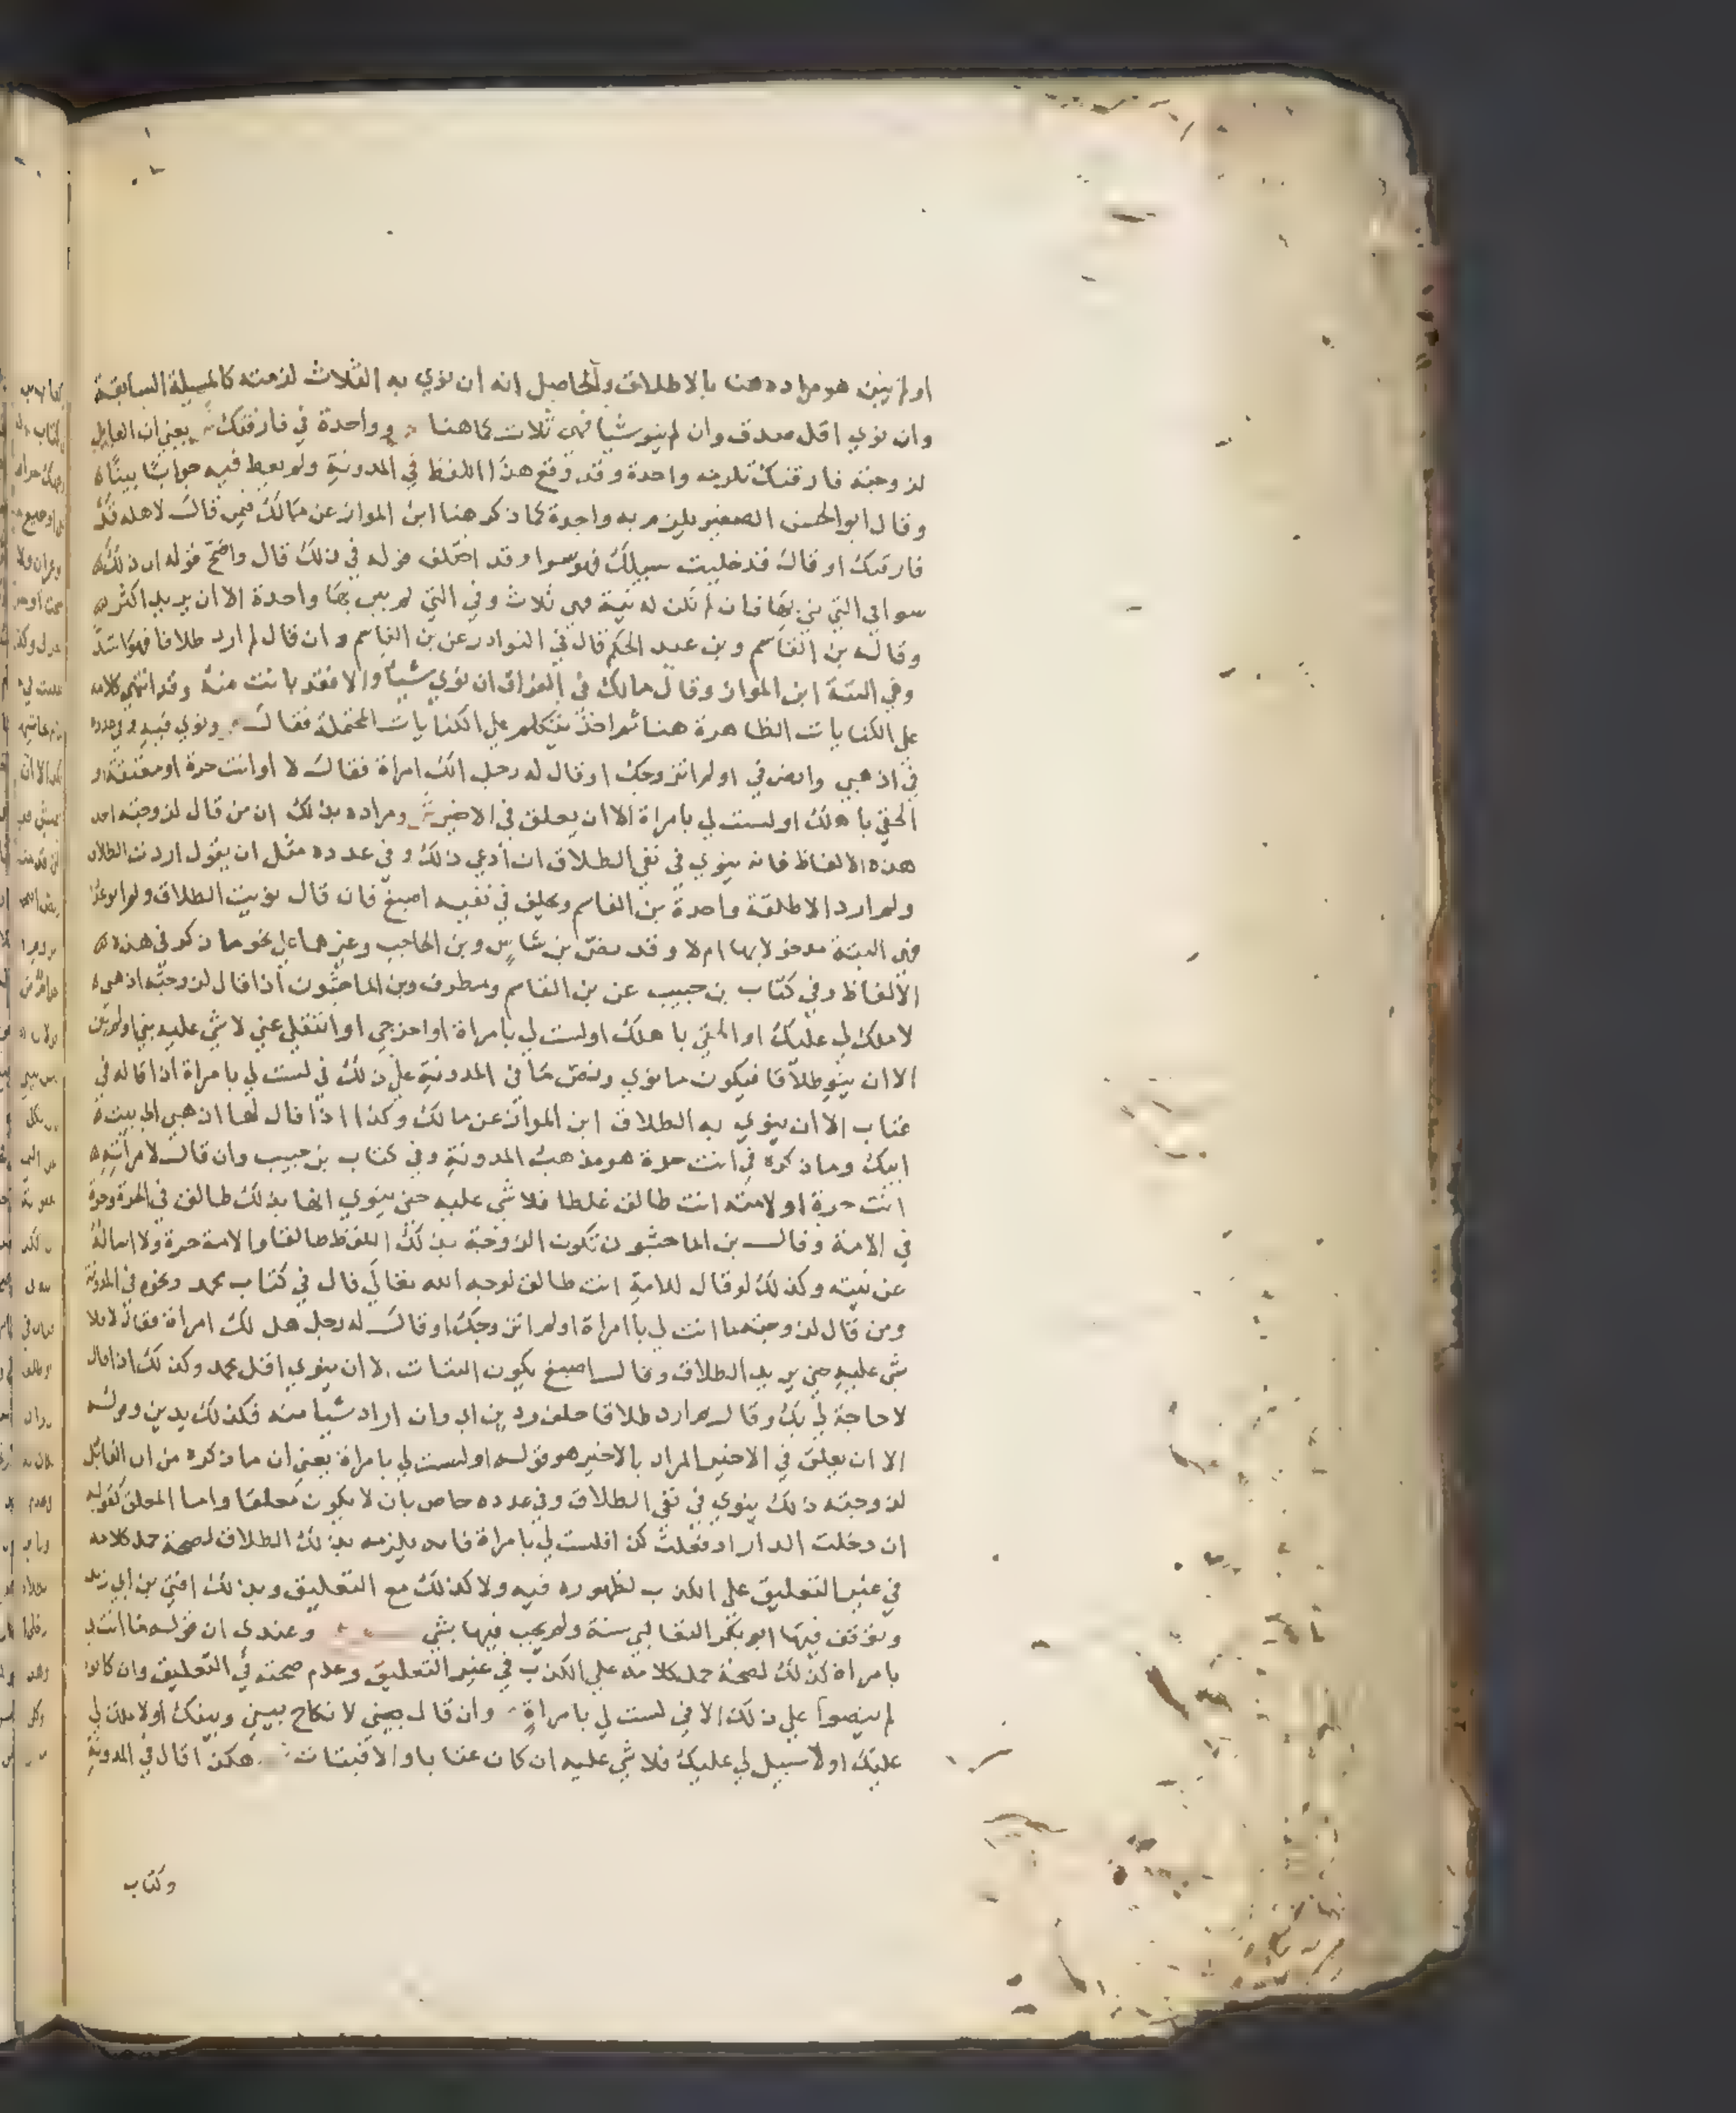 او لم يبن هو مراده هنا بالاطلاق والحاصل انه ان نوي به الثلاث لزمته كالمسيلة السابقة
وان نوي اقل صدق وان لم ينو شيا فهي ثلاث كما هنا وواحدة في فارقتك يعني ان القايل
لزوجته فارقتك تلزمه واحدة وقد وقع هذا اللفظ في المدونة ولم يعط فيه جوابا بينا
وقال ابو الحسن الصغير يلزمه به واحدة كما ذكر هنا ابن المواز عن مالك فيمن قال لاهله قد
فارقتك او قال قد خليت سبيلك فهو سوا وقد اختلف قوله في ذلك قال واضح قوله ان ذلك
سوا في التي بني بها فان لم تكن له نية فهي ثلاث وفي التي لم يبن بها واحدة الا ان يريد اكثر
وقاله بن القاسم وبن عبد الحكم قال في النوادر عن بن القاسم وان قال لم ارد طلاقا فهو اشد
وفي البتة ابن المواز وقال مالك في الفراق ان نوي شيا والا فقد بانت منه وقد انتهي كلامه
علي الكنايات الظاهرة هنا ثم اخذ يتكلم علي الكنايات المحتملة فقال ونوي فيه وفي عدده
في اذهبي وانصرفي او لم اتزوجك او قال له رجل الك امراة فقال لا او انت حرة او معتقة او
الحقي باهلك او لست لي بامراة الا ان يعلق في الاخير ومراده بذلك ان من قال لزوجته احد
هذه الالفاظ فانه ينوي في نفي الطلاق ان ادعي ذلك وفي عدده مثل ان يقول اردت الطلاق
ولم ارد الا طلقة واحدة بن القاسم ويحلف في نفيه اصبغ فان قال نويت الطلاق ولم انو عددا
فهي البتة مدخولا بها ام لا وقد نص بن شاس وبن الحاجب وغيرهما علي نحو ما ذكر في هذه
الالفاظ وفي كتاب بن حبيب عن بن القاسم ومطرف وبن الماجشون اذا قال لزوجته اذهبي
لا ملك لي عليك او الحقي باهلك او لست لي بامراة او اخرجي او انتقلي عني لا شي عليه بني او لم يبن
الا ان ينو طلاقا فيكون ما نوي ونص ما في المدونة علي ذلك في لست لي بامراة اذا قاله في
عتاب الا ان ينوي به الطلاق ابن المواز عن مالك وكذا اذا قال لها اذهبي الي بيت
ابيك وما ذكره في انت حرة هو مذهب المدونة وفي كتاب بن حبيب وان قال لامراته
انت حرة او لامته انت طالق غلطا فلا شي عليه حتي ينوي انها بذلك طالق في الحرة وحرة
في الامة وقال بن الماجشون تكون الزوجة بذلك اللفظ طالقا والامة حرة ولا اساله
عن نيته وكذلك لو قال للامة انت طالق لوجه الله تعالي قال في كتاب محمد ونحوه في المدونة
ومن قال لزوجته ما انت لي بامراة او لم اتزوجك او قال له رجل هل لك امراة فقال لا فلا
شي عليه حتي يريد الطلاق وقال اصبغ يكون البتات الا ان ينوي اقل محمد وكذلك اذا قال
لا حاجة لي بك وقال لم ارد طلاقا حلف ودين اي وان اراد شيا منه فكذلك يدين وقوله
الا ان يعلق في الاخير المراد بالاخير هو قوله او لست لي بامراة يعني ان ما ذكره من ان القايل
لزوجته ذلك ينوي في نفي الطلاق وفي عدده خاص بان لا يكون معلقا واما المعلق كقوله
ان دخلت الدار او فعلت كذا فلست لي بامراة فانه يلزمه بذلك الطلاق لصحة حمل كلامه
في غير التعليق علي الكذب لظهوره فيه ولا كذلك مع التعليق وبذلك افتي بن ابي زيد
وتوقف فيها ابو بكر النعالي سنة ولم يجب فيها بشي وعندي ان قوله ما انت لي
بامراة كذلك لصحة حمل كلامه علي الكذب في غير التعليق وعدم صحته في التعليق وان كانوا
لم ينصوا علي ذلك الا في لست لي بامراة وان قال يعني لا نكاح بيني وبينك او لا ملك لي
عليك او لا سبيل لي عليك فلا شي عليه ان كان عتابا والا فبتات هكذا قال في المدونة
وكتاب